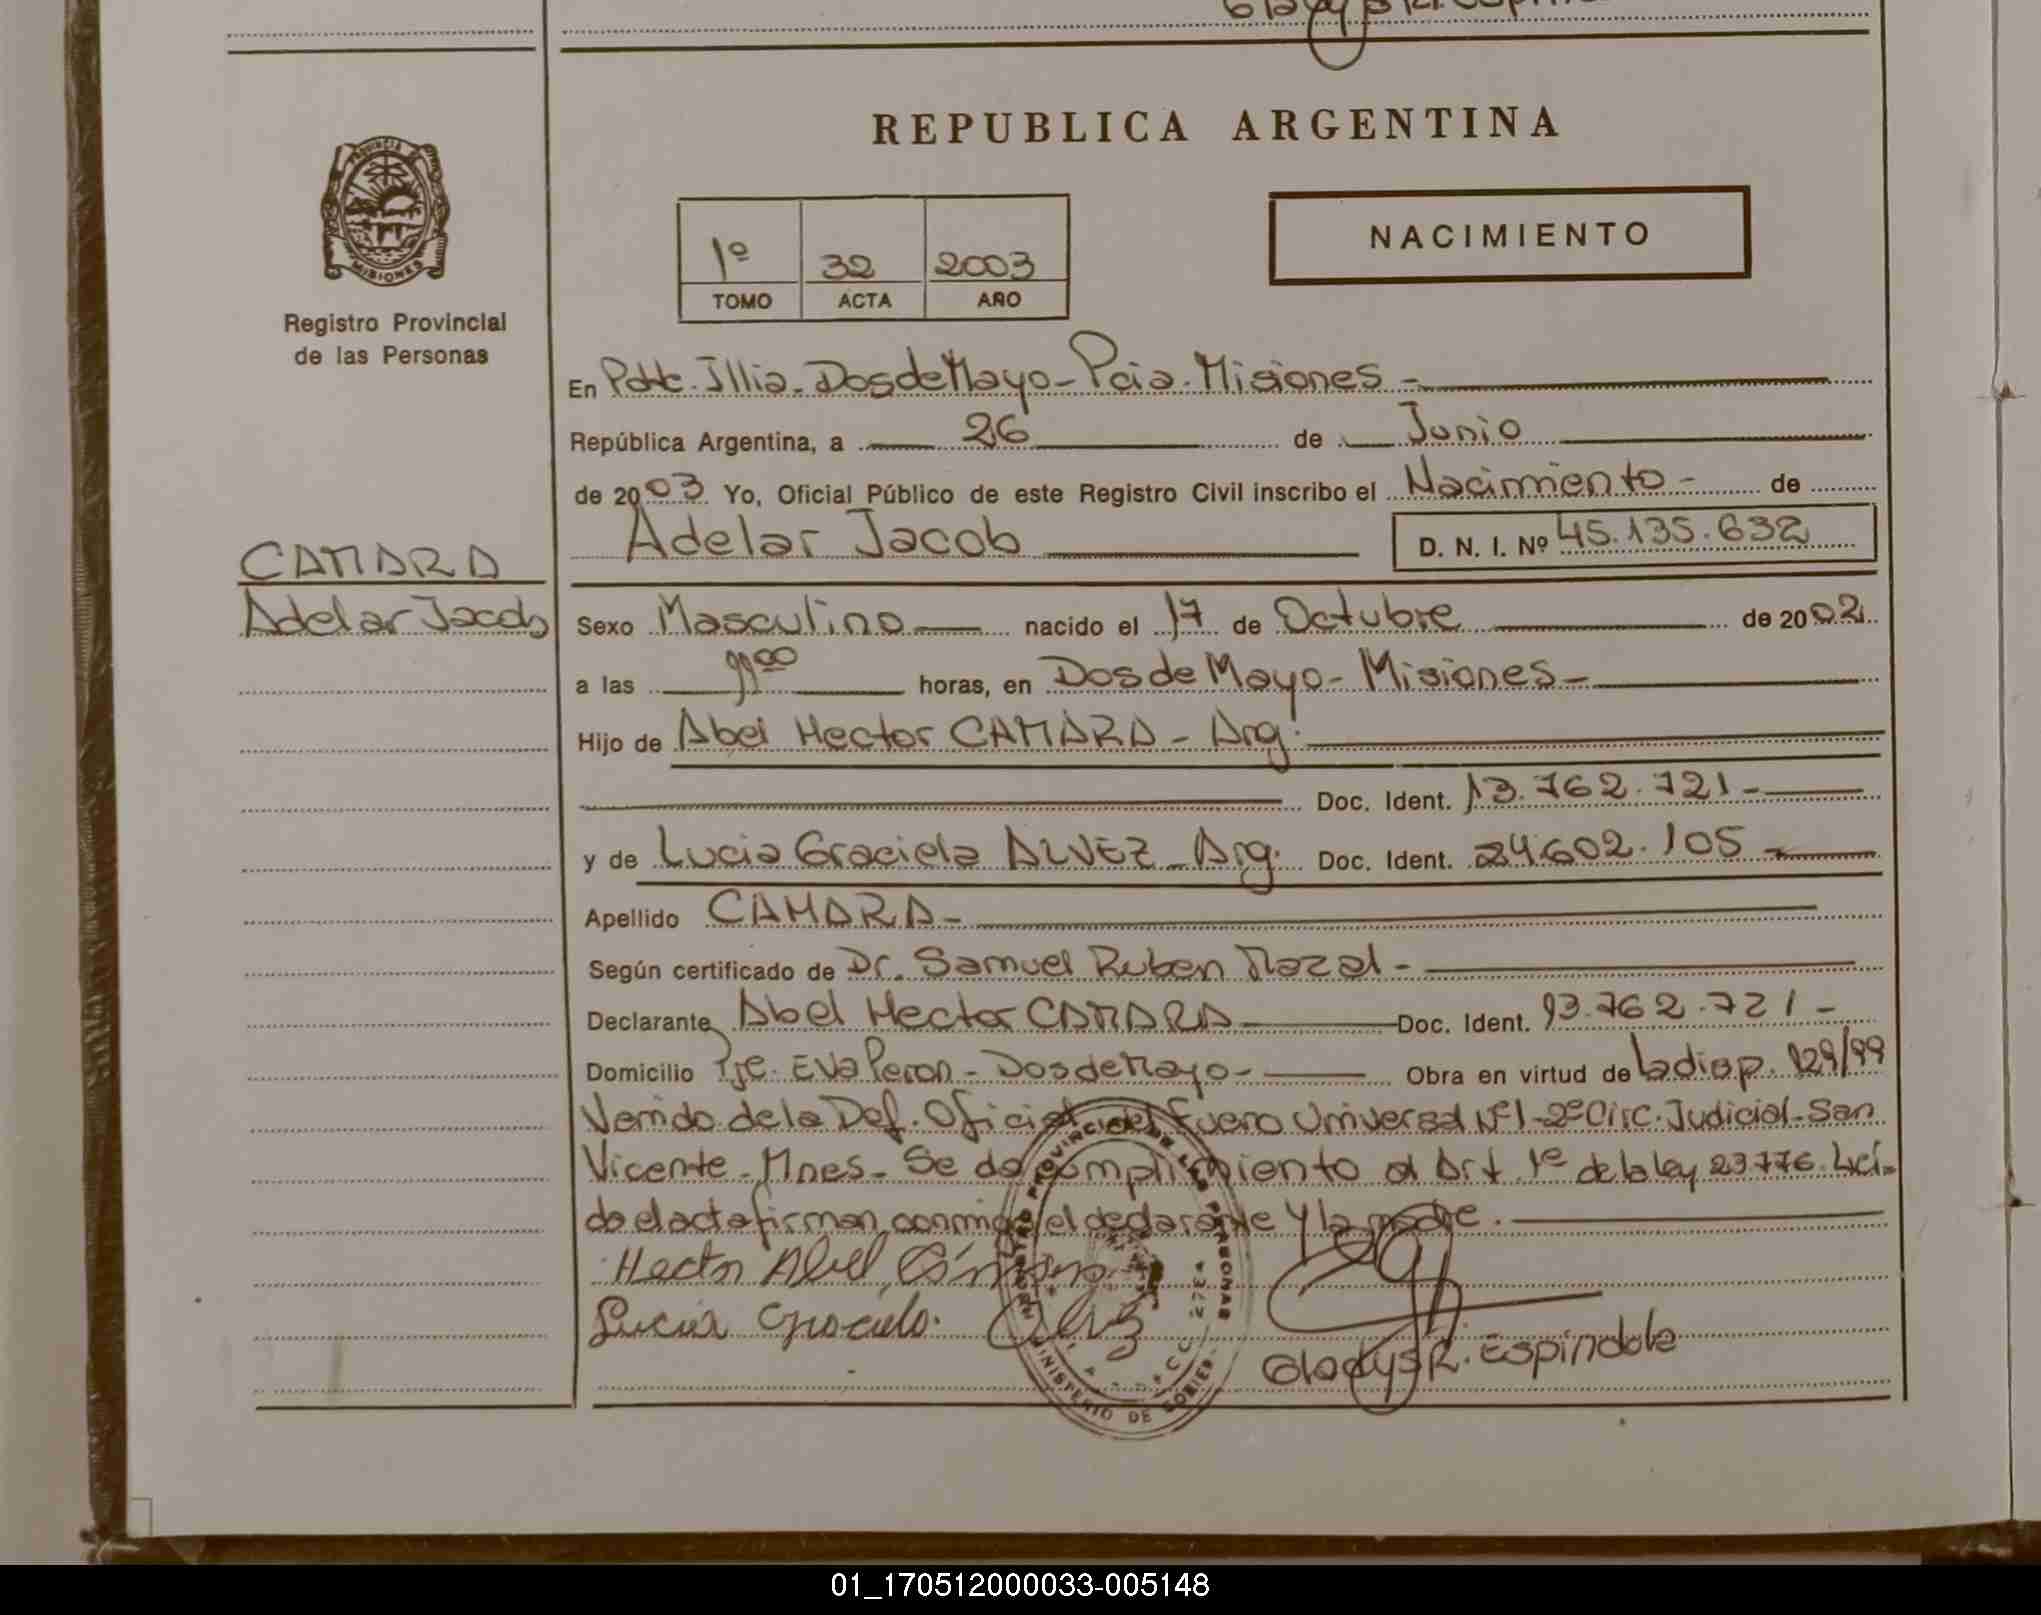 REPUBLICA ARGENTINA
PROVINCIA DE
MISIONES
Registro Provincial
de las Personas
1º 32 2003
TOMO ACTA AÑO
NACIMIENTO
En Pdte. Illia. Dos de Mayo - Pcia. Misiones -
República Argentina, a 26 de Junio
de 2003 Yo, Oficial Público de este Registro Civil inscribo el Nacimiento - de
Adelar Jacob D. N. I. Nº 45.135.632
CAMARA
Adelar Jacob
Sexo Masculino nacido el 17 de Octubre de 2002
a las horas, en Dos de Mayo - Misiones -
Hijo de Abel Hector CAMARA - Arg.
Doc. Ident. 13.762.721 -
y de Lucia Graciela ALVEZ - Arg. Doc. Ident. 24.602.105 -
Apellido CAMARA -
Según certificado de Dr. Samuel Ruben Mazal -
Declarante Abel Hector CAMARA Doc. Ident. 13.762.721 -
Domicilio Pje. Eva Peron - Dos de Mayo - Obra en virtud de la disp. 129/99
Venido de la Def. Oficial del Fuero Universal Nº 1 - 2º Circ. Judicial - San
Vicente - Mnes - Se da cumplimiento al Art. 1º de la ley 23.776. Leí-
do el acta firman conmigo el declarante y la madre.
Hector Abel Cámara
Lucia Graciela Alvez
Gladys R. Espindola
01_170512000033-005148